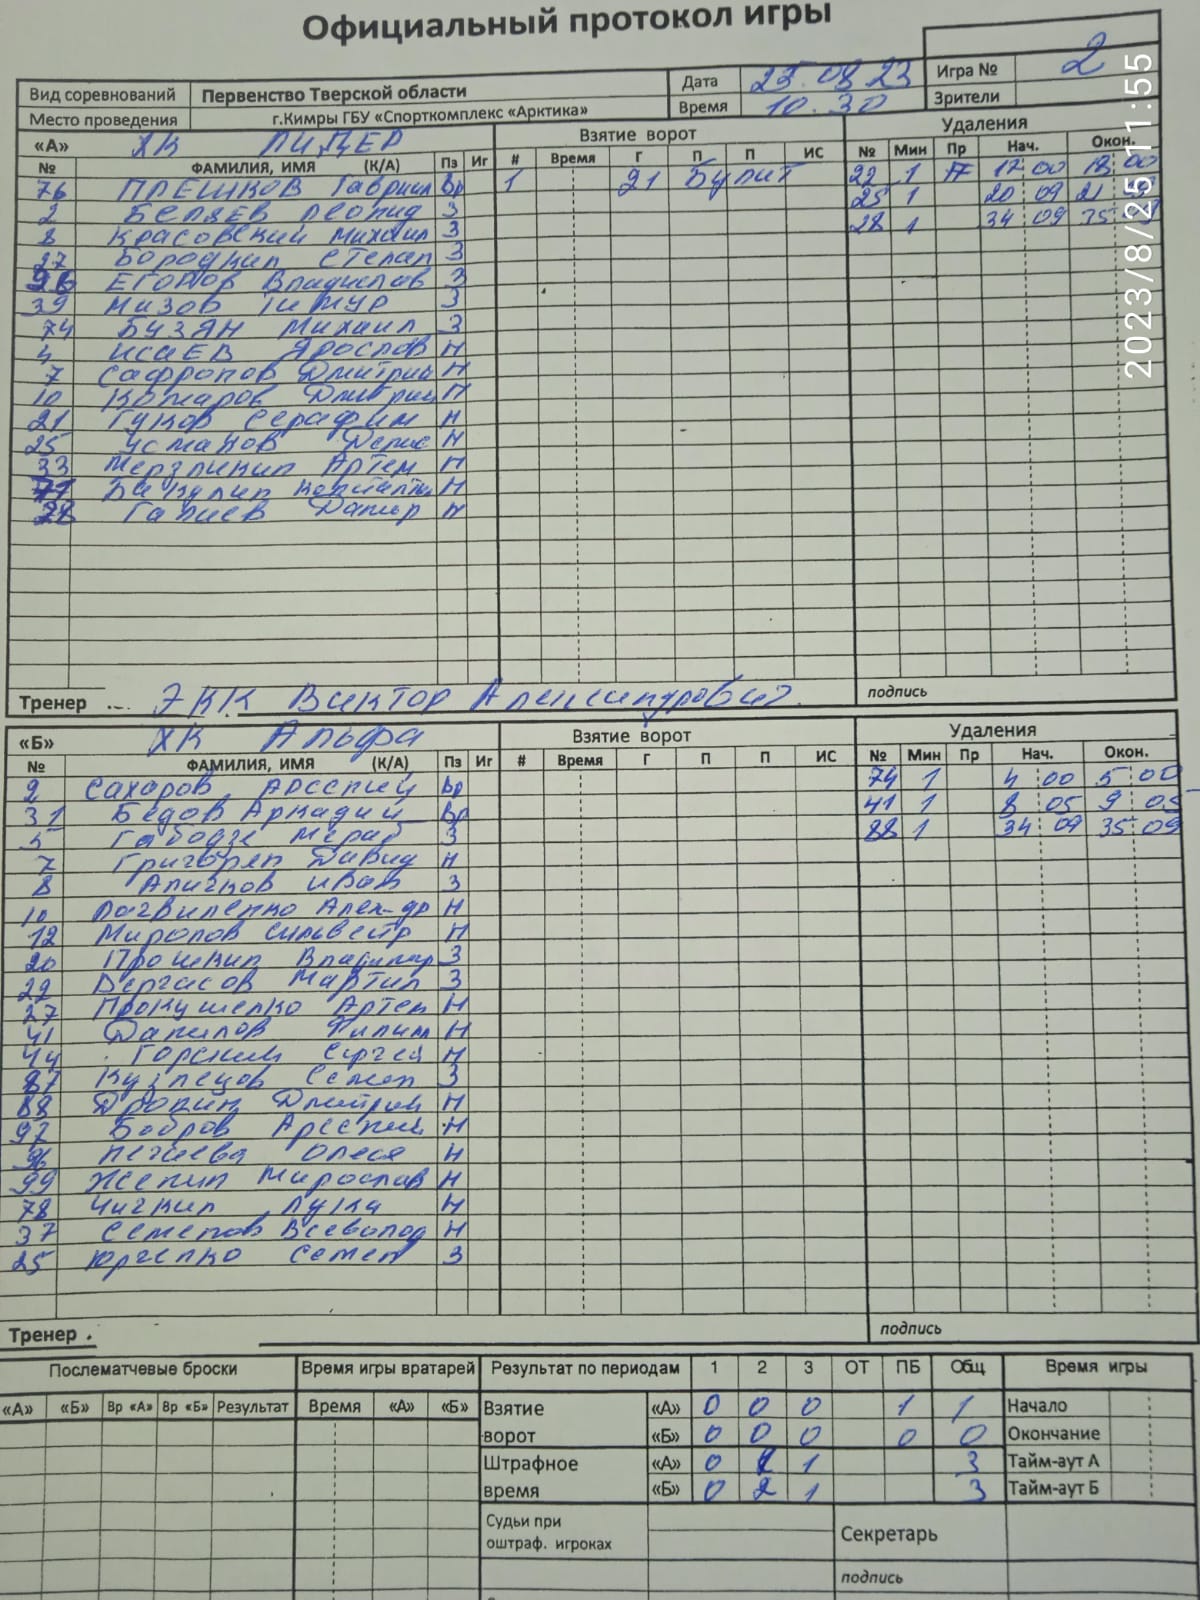 Официальный протокол игры
Вид соревнований Первенство Тверской области Дата 25.08.23 Игра № 2
Место проведения г.Кимры ГБУ «Спорткомплекс «Арктика» Время 10.30 Зрители
«А» ХК ЛИДЕР Взятие ворот Удаления
№ ФАМИЛИЯ, ИМЯ (К/А) Пз Иг # Время Г П П ИС № Мин Пр Нач. Окон.
76 ПЛЕШКОВ Гавриил Вр 1 21 Булит 22 1 17 00 18 00
2 БЕЛЯЕВ Леонид З 25 1 20 09 21 09
8 Красовский Михаил З 28 1 34 09 35 09
27 Бородкин Степан З
26 ЕГОРОВ Владислав З
39 Мазов Тимур З
74 БУЗЯН Михаил З
4 ИСАЕВ Ярослав Н
7 Сафронов Дмитрий Н
10 Комаров Дмитрий Н
21 Гуков Серафим Н
25 Усманов Денис Н
33 Мерзликин Артем Н
77 Вакулин Константин Н
28 Галиев Дамир Н
Тренер ЭКК Виктор Александрович подпись
«Б» ХК Альфа Взятие ворот Удаления
№ ФАМИЛИЯ, ИМЯ (К/А) Пз Иг # Время Г П П ИС № Мин Пр Нач. Окон.
2 Сахаров Арсений Вр 74 1 4 00 5 00
31 Бедов Аркадий Вр 41 1 8 05 9 05
5 Габодзе Мераб З 88 1 34 09 35 09
7 Григорян Давид Н
8 Аличков Иван З
10 Логвиненко Алек-др Н
12 Миронов Сильвестр Н
20 Прошкин Владимир З
22 Дергасов Мартин З
27 Прокушенко Артем Н
41 Данилов Филипп Н
44 Горский Сергей Н
87 Кузнецов Семен З
88 Дронин Дмитрий Н
97 Бобров Арсений Н
96 Нечаева Олеся Н
99 Женин Мирослав Н
78 Чичкин Лука Н
37 Семенов Всеволод Н
25 Юрченко Семен З
Тренер подпись
Послематчевые броски Время игры вратарей Результат по периодам 1 2 3 ОТ ПБ Общ Время игры
«А» «Б» Вр «А» Вр «Б» Результат Время «А» «Б» Взятие «А» 0 0 0 1 1 Начало
ворот «Б» 0 0 0 0 0 Окончание
Штрафное «А» 0 2 1 3 Тайм-аут А
время «Б» 0 2 1 3 Тайм-аут Б
Судьи при
оштраф. игроках Секретарь
подпись
2023/8/25 11:55